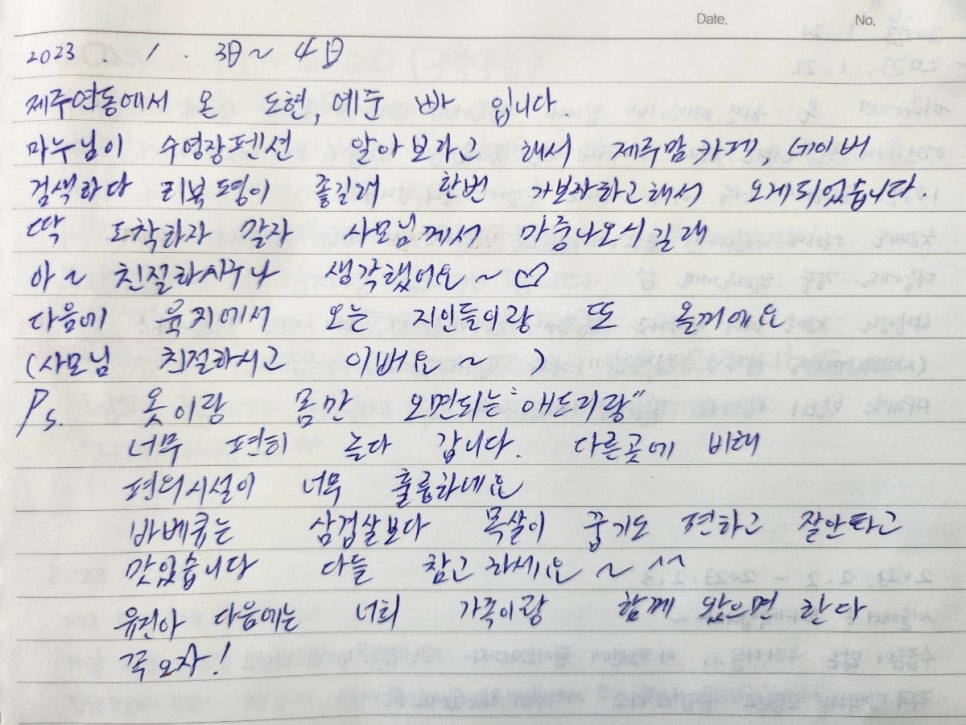 Date. No.
2023 1. 3日~4日
제주연동에서 온 도현,예준 빠 입니다.
마누님이 수영장펜션 알아보라고 해서 제주맘카페, 네이버
검색하다 리뷰평이 좋길래 한번 가보자하고해서 오게되었습니다.
딱 도착하자 말자 사모님께서 마중나오시길래
아~ 친절하시구나 생각했어요~♡
다음에 육지에서 오는 지인들이랑 또 올께에요
(사모님 친절하시고 이뻐요~ )
P/s. 옷이랑 몸만 오면되는 "애드리랑"
너무 편히 놀다 갑니다. 다른곳에 비해
편의시설이 너무 훌륭하네요
바베큐는 삼겹살보다 목살이 꿉기도 편하고 잘안타고
맛있습니다 다들 참고하세요~ ^^
유진아 다음에는 너희 가족이랑 함께 왔으면 한다
꼭오자!